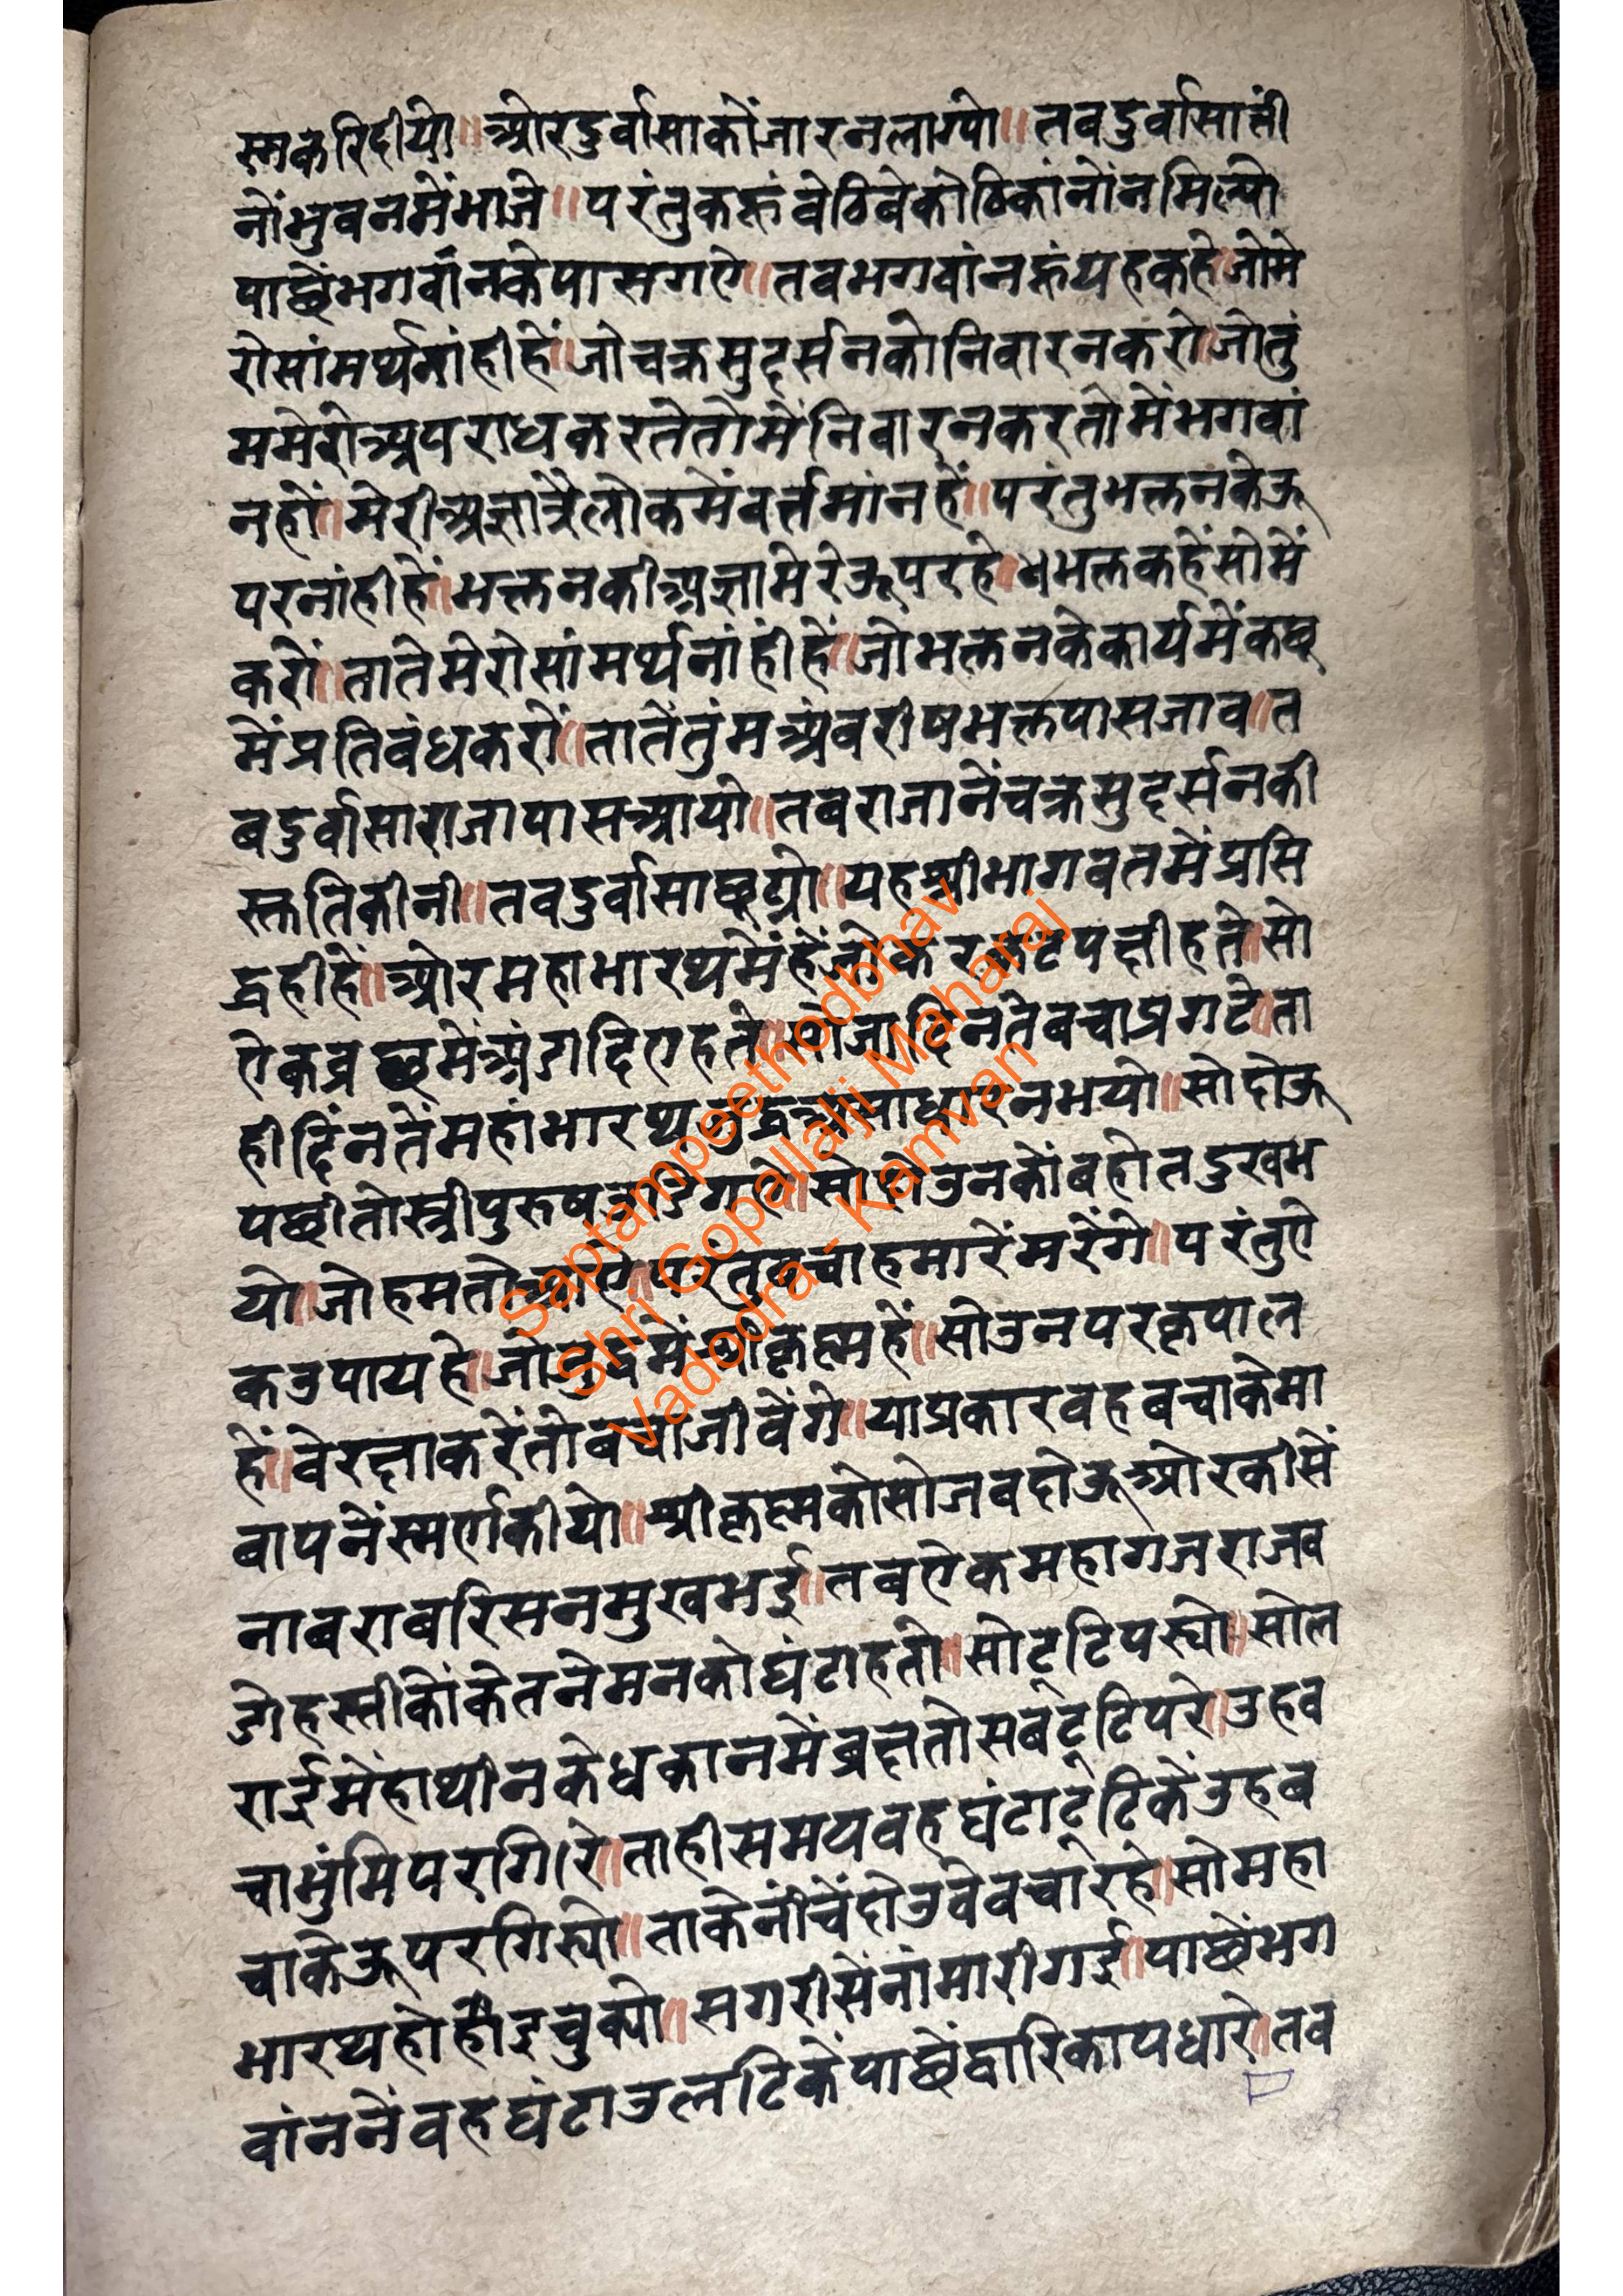 स्मकरिदीयो॥ ओरदुर्वासाकोंजारनलाग्यो॥ तबदुर्वासाती
नोंभुवनमेंभाजे॥ परंतुकहूंबेठिवेकोठिकांनोंनमिल्यो
पाछेंभगवांनकेपासगऐ॥ तबभगवांनहूंयहकहे॥जोमे
रोसांमर्थ्यनांहीहें॥जोचक्रसुदर्सनकोनिवारनकरों॥जोतुं
ममेरोअपराधकरतेतोमेंनिवारनकरतोमेंभगवां
नहों॥ मेरीअज्ञात्रैलोकमेंवर्त्तमांनहें॥ परंतुभक्तनकेऊ
परनांहीहें॥ भक्तनकीअज्ञामेरेऊपरहे॥ भक्तकहेंसोमें
करों॥ तातेमेरोसांमर्थ्यनांहीहें॥ जोभक्तनकेकार्यमेंकछू
मेंप्रतिबंधकरों॥ तातेंतुंमअंबरीषभक्तपासजाव॥ त
बदुर्वासाराजापासआयो॥ तबराजानेंचक्रसुदर्सनकी
स्तुतिकीनी॥ तबदुर्वासाछूट्यो॥ यहश्रीभागवतमेंप्रसि
द्धहीहें॥ ओरमहाभारथमेंहेंजोऐकरुजटपक्षीहते॥ सो
ऐकव्रछमेंअंगदिऐहते॥ सोजादिनतेबचाप्रगटे॥ ता
हीदिंनतेंमहांभारथजुद्धअसाधारनभयो॥ सोदोऊ
पछीतोस्त्रीपुरुषउडिगऐ॥ सोपीउनकोंबहोतदुखभ
यो॥ जोहमतोआऐ॥ परंतुबचाहमारेंमरेंगे॥ परंतुऐ
कउपायहे॥ जोजुद्धमेंश्रीकृष्महें॥ सोउनपरकृपाल
हें॥ वेरक्षाकरेंतोबचाजीवेंगे॥ याप्रकारवहबचाकेमा
बापनेंस्मर्णकीयो॥ श्रीकृष्मकोसोजबदोऊओरकीसें
नाबराबरिसनमुखभई॥ तबऐकमहागजराजब
डोहस्तीकोंकेतनेमनकोघंटाहतो॥ सोटूटिपर्यो॥ सोल
राईमेंहाथीनकेधकानमेंव्रक्षतोसबटूटिपरे॥ उहब
चाभुंमिपरगिरे॥ ताहीसमयवहघंटाटूटिकेंउहब
चाकेऊपरगिर्यो॥ ताकेनीचेंदोउवेबचारहे॥ सोमहा
भारथहोहोइचुक्यो॥ सगरीसेंनांमारीगई॥ पाछेंभग
वांननेंवहघंटाउलटिकेंपाछेंद्वारिकापधारे॥ तब
Saptampeethodbhav
Shri Gopallalji Maharaj
Vadodra - Kamvan